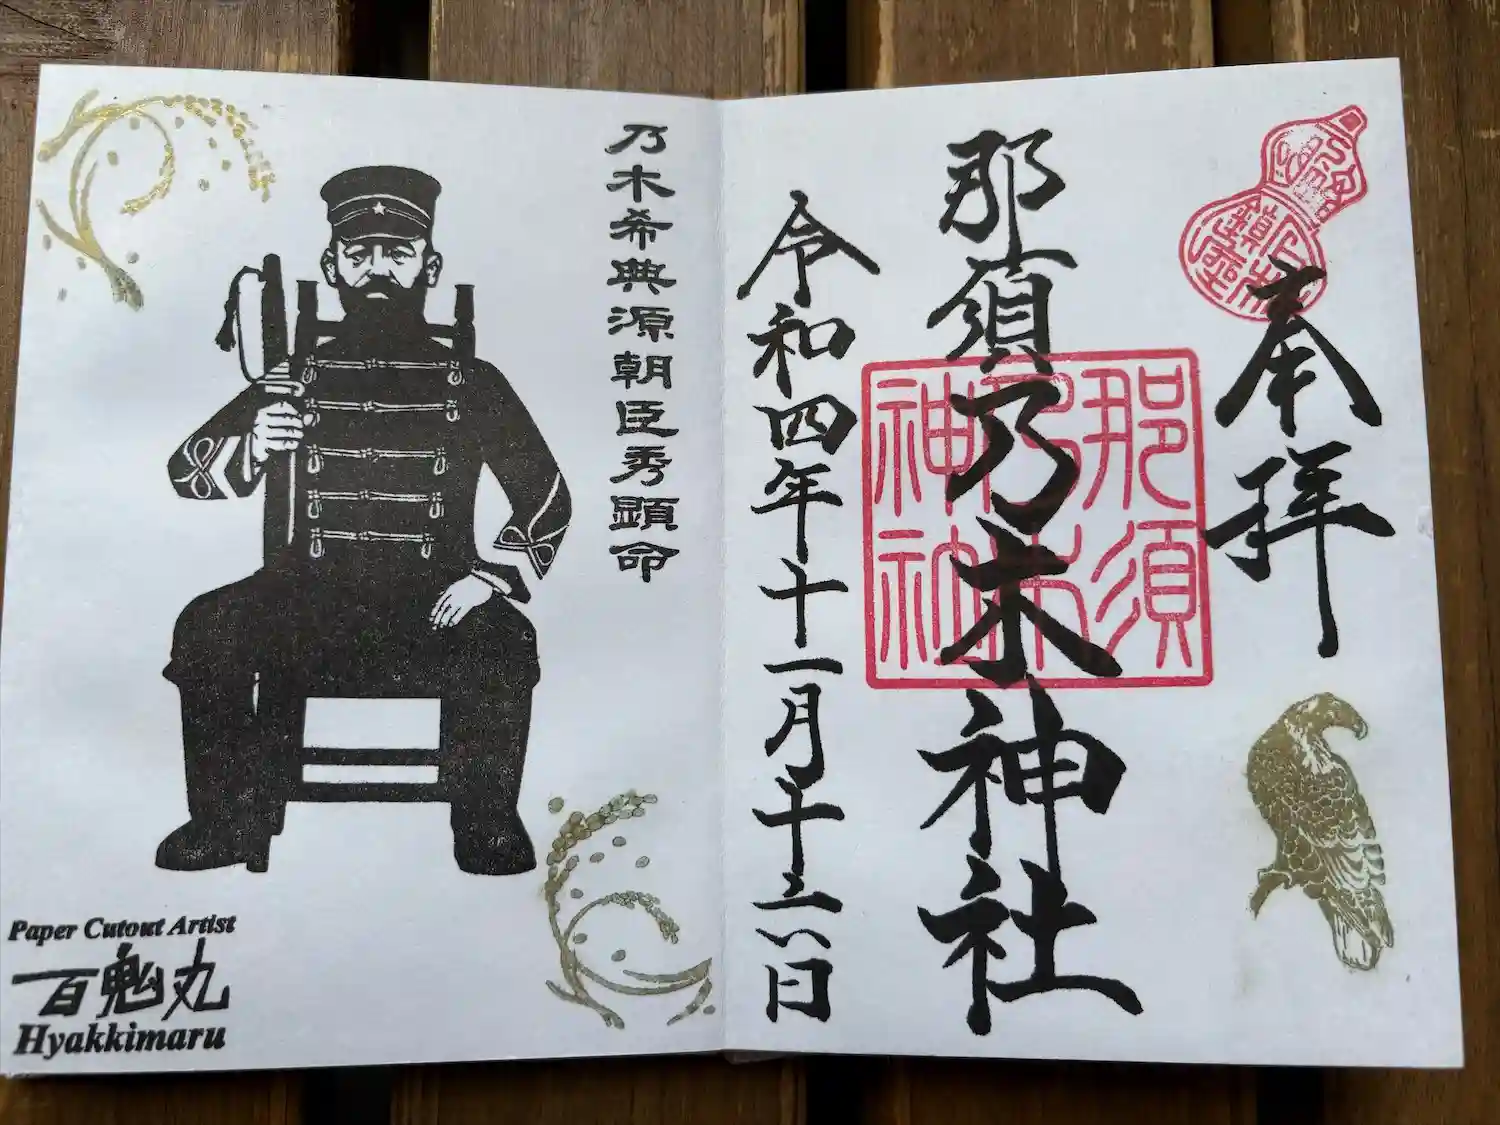 奉拝
那須乃木神社
那須
乃木
神社
令和四年十一月十六日
乃木希典源朝臣秀顕命
Paper Cutout Artist
百鬼丸
Hyakkimaru